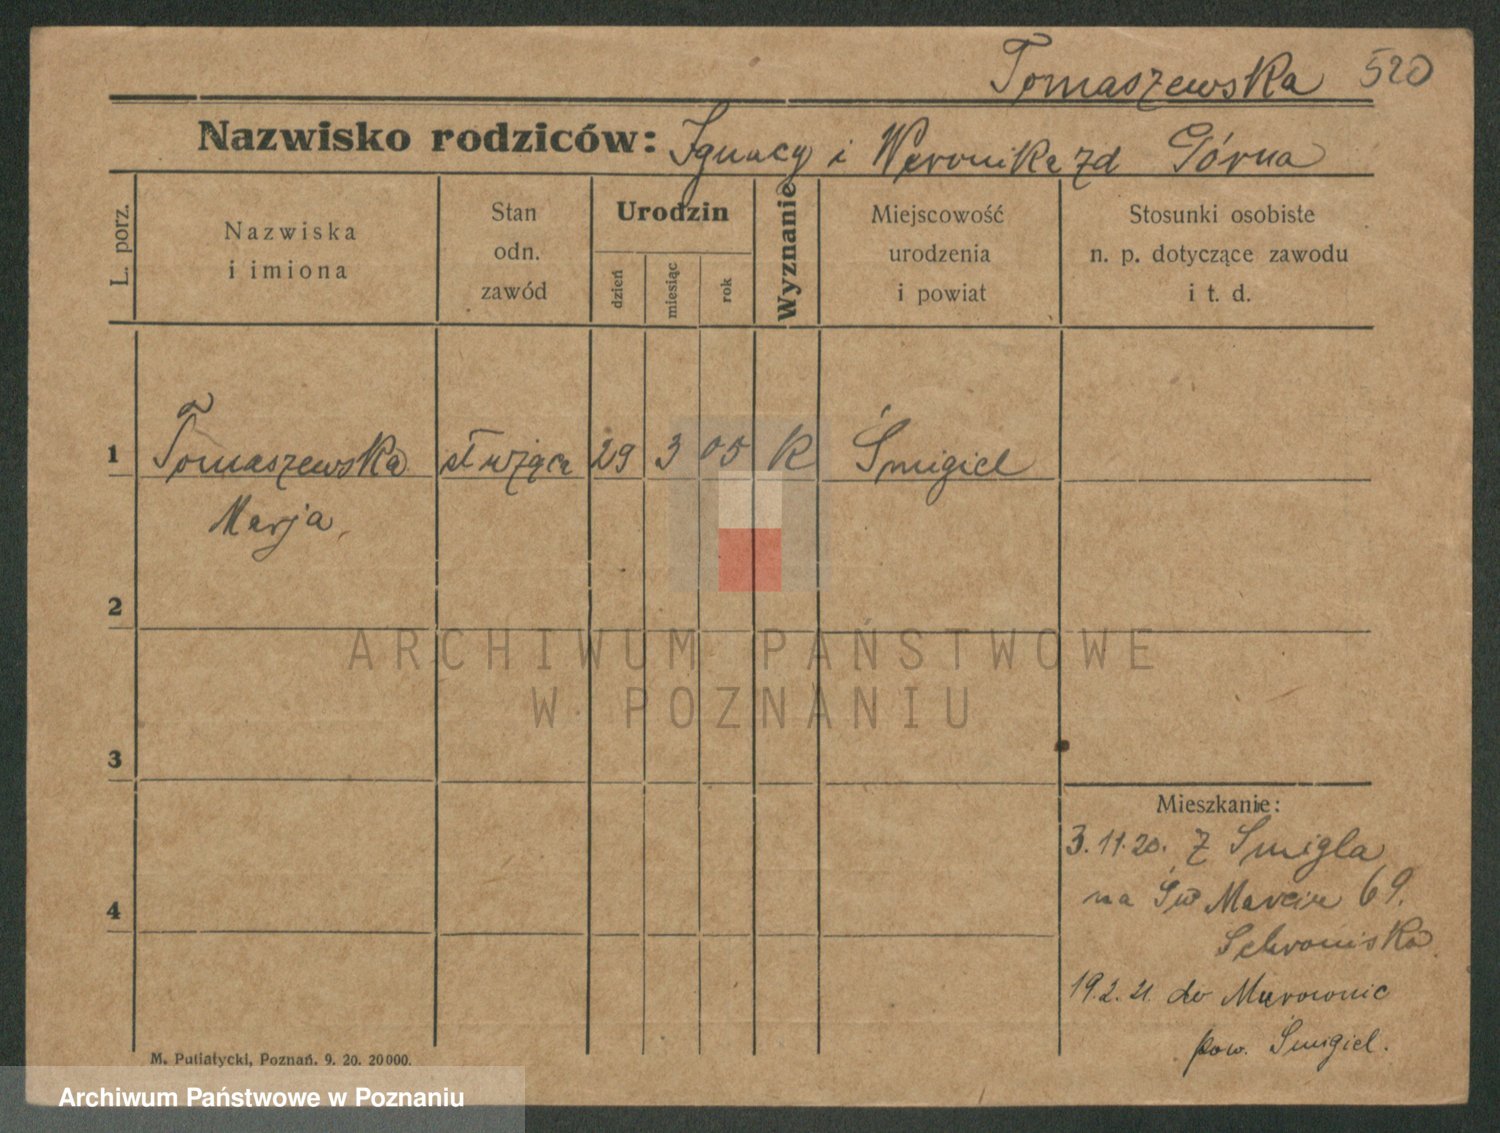 Tomaszewska 520
Nazwisko rodziców: Ignacy i Weronika zd Górna
L. porz.
Nazwiska
i imiona
Stan
odn.
zawód
Urodzin
dzień
miesiąc
rok
Wyznanie
Miejscowość
urodzenia
i powiat
Stosunki osobiste
n. p. dotyczące zawodu
i t. d.
1 Tomaszewska służąca 29 3 05 K Śmigiel
Marja
2
ARCHIWUM PAŃSTWOWE
W POZNANIU
3
Mieszkanie:
3.11.20. z Śmigla
na Św Marcin 69.
4
19.2.21. do
pow. Śmigiel.
M. Putiatycki, Poznań. 9. 20. 20000.
Archiwum Państwowe w Poznaniu